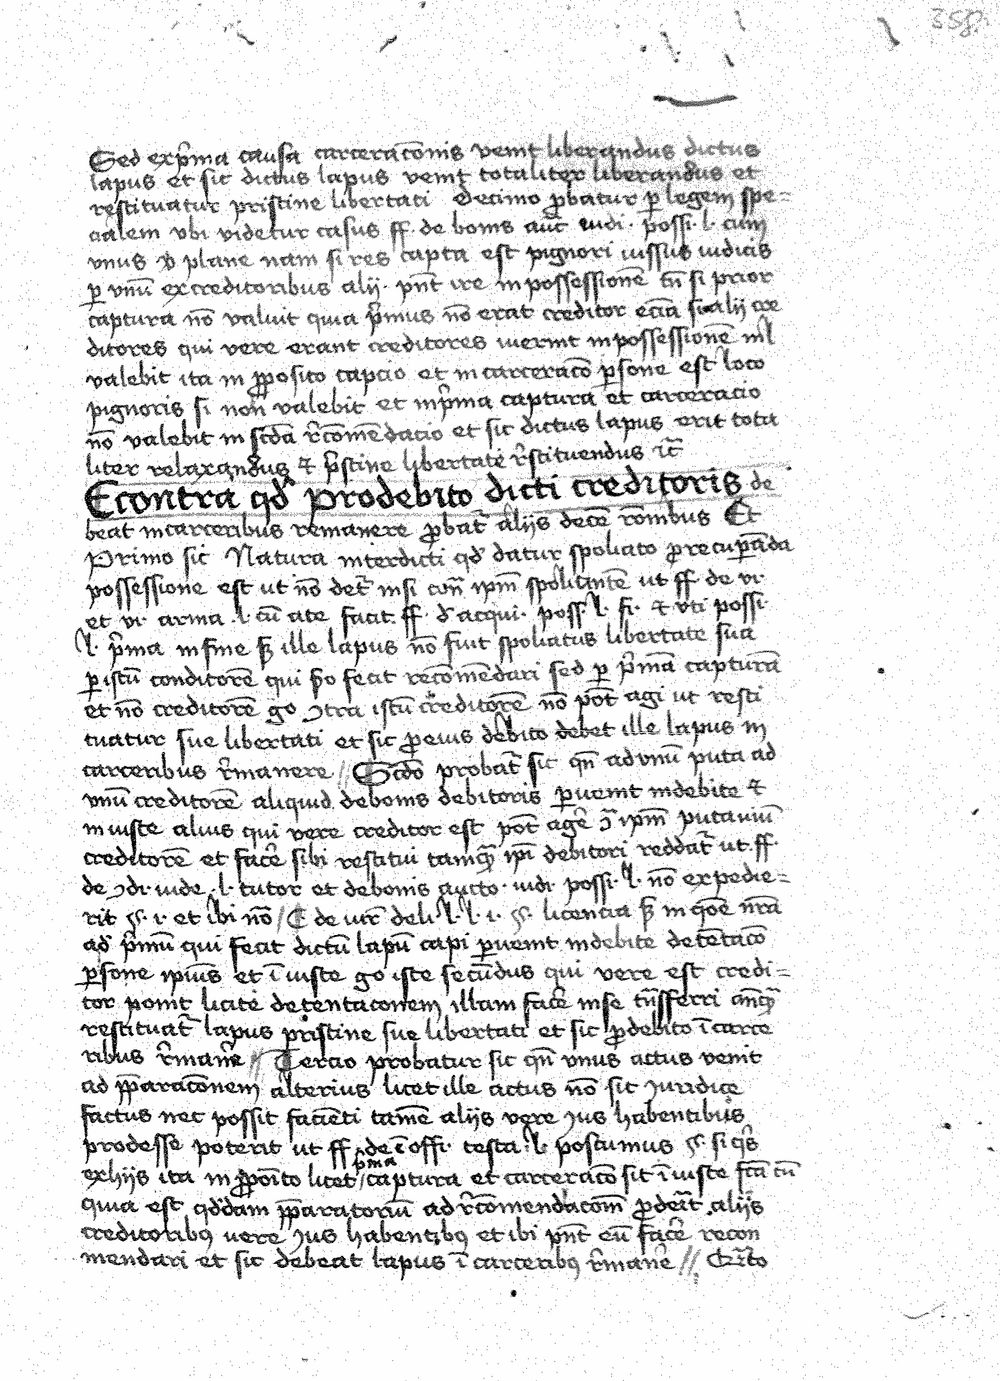 358.
Sed exp̄ma causa carcerac̄onis venit liberandus dictus
lapus et sic dictus lapus venit totaliter liberandus et
restituatur pristine libertati Decimo ꝓbatur ꝑ legem spe=
cialem vbi videtur casus ff. de bonis auct̄ iudi. possi. l. cum
vnus § plane nam si res capta est pignori iussus iudicis
ꝑ vnū ex creditoribus alij. pn̄t ire in possessionē tn̄ si prior
captura nō valuit quia p̄mus nō erat creditor ecīa si alij cre
ditores qui vere erant creditores iuerint in possessionē nil
valebit ita in ꝓposito capcio et incarceracō ꝑsone est loco
pignoris si non valebit et in p̄ma captura et carceracio
nō valebit in sc̄da r̄comēdacio et sic dictus lapus erit tota
liter relaxandus & p̄stine libertatē r̄stituendus ic̄
Econtra qd̄ prodebito dicti creditoris de
beat in carceribus remanere ꝓbat̄ alijs decē rōnibus Et
Primo sic Natura interdicti qd̄ datur spoliato ꝓrecuꝑāda
possessione est ut nō det̄ nisi con̄ ip̄m spoliantē ut ff. de vi.
et vi. arma. l. cū a te facit. ff. d̄ acqui. poss. l. fi. & vti possi.
l. p̄ma in fine sꝫ ille lapus nō fuit spoliatus libertate sua
ꝑ istū conditorē qui fecit recōmēdari sed ꝑ p̄mā capturā
et nō creditorē go ꝯtra istū creditorē nō pōt agi ut resti
tuatur sue libertati et sic ꝓ eius debito debet ille lapus in
carceribus r̄manere // Sc̄do probat̄ sic qn̄ ad vnū puta ad
vnū creditorē aliquid de bonis debitoris ꝑuenit indebite &
iniuste alius qui vere creditor est pōt agē ꝯ̄ ip̄m putatiuū
creditorē et facē sibi restitui tamqꝫ ip̄i debitori reddat̄ ut. ff.
de ꝯdi. inde. l. tutor et de bonis aucto. iudi. possi. l. nō expedie=
rit §. i. et ibi nō / C de iur̄ deli. l. l. i. §. licencia sꝫ in qōe nr̄a
ad p̄mū qui fecit dictū lapū capi ꝑuenit indebite detētacō
ꝑsone ip̄ius et īiuste go iste secūdus qui vere est credi=
tor potuit licite detentaconem illam facē in se tn̄sferri anqꝫ
restituat̄ lapus pristine sue libertati et sic ꝓ debito ī carce
ribus r̄manē // Tercio probatur sic qn̄ vnus actus venit
ad p̄paracōnem alterius licet ille actus nō sit juridice
factus nec possit faciēti tamē alijs vere jus habentibus
prodesse poterit ut ff. de ī offi. testa. l. postumus §. si qs̄
p̄ma
ex hijs ita in ꝓpoīto licet / captura et carceracō sit īiuste fc̄a tn̄
quia est qd̄dam p̄paratoriū ad r̄cōmendacōm ꝓdeīt alijs
creditoribꝫ vere jus habentibꝫ et ibi pn̄t eū facē recon
mendari et sic debeat lapus ī carceribꝫ r̄manē //